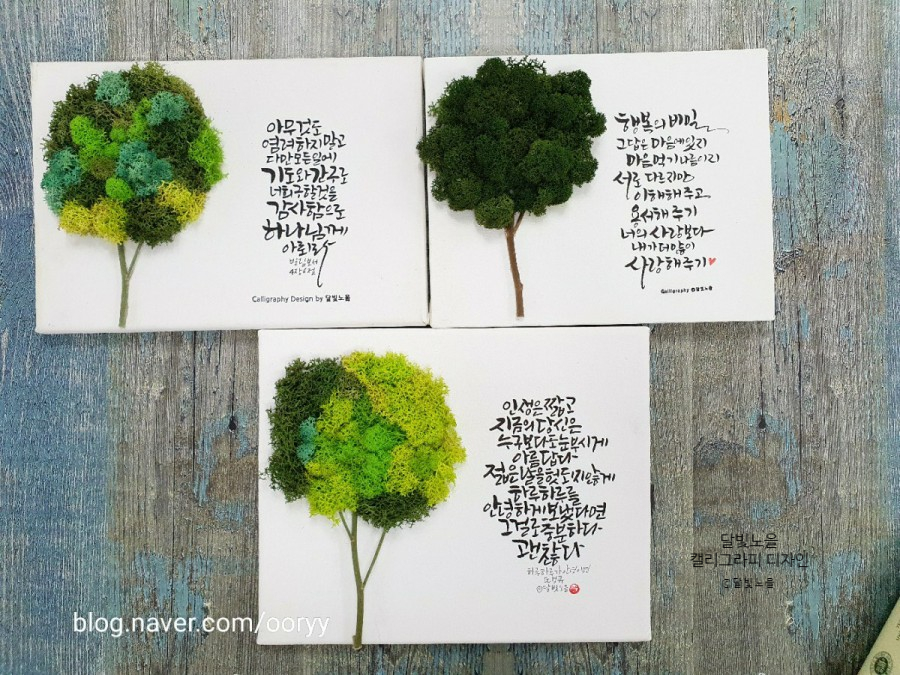 아무것도
염려하지말고
다만모든일에
기도와 간구로
너희구할것을
감사함으로
하나님께
아뢰라
빌립보서
4장6절
Calligraphy Design by 달빛노을
행복의 비밀
그 답은 마음에 있지
마음먹기 나름이리
서로 다르지만
이해해 주고
용서해 주기
너의 사랑보다
내가 더 많이
사랑해 주기
Calligraphy @달빛노을
인생은 짧고
지금의 당신은
누구보다도 눈부시게
아름답다
젊은 날을 헛되지 않게
하루하루를
안녕하게 보냈다면
그걸로 충분하다
괜찮다
@달빛노을
달빛노을
캘리그라피 디자인
@달빛노을
blog.naver.com/ooryy